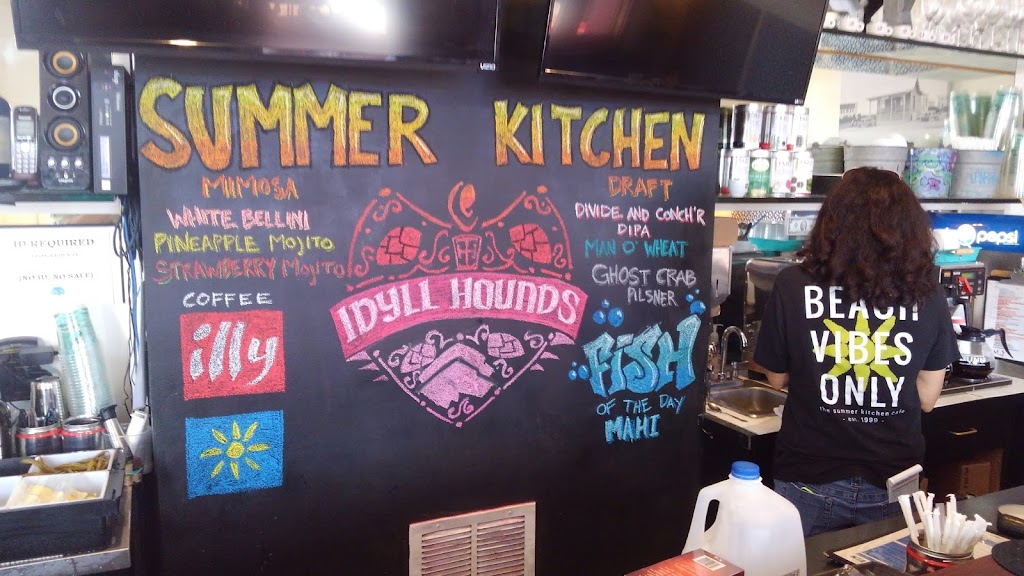 SUMMER KITCHEN
MIMOSA
WHITE BELLINI
PINEAPPLE MOJITO
STRAWBERRY MOJITO
COFFEE
illy
IDYLL HOUNDS
DRAFT
DIVIDE AND CONCH'R
DIPA
MAN O' WHEAT
GHOST CRAB
PILSNER
FISH
OF THE DAY
MAHI
ID REQUIRED
BEACH
VIBES
ONLY
the summer kitchen cafe
- est. 1999 -
pepsi
VIZIO